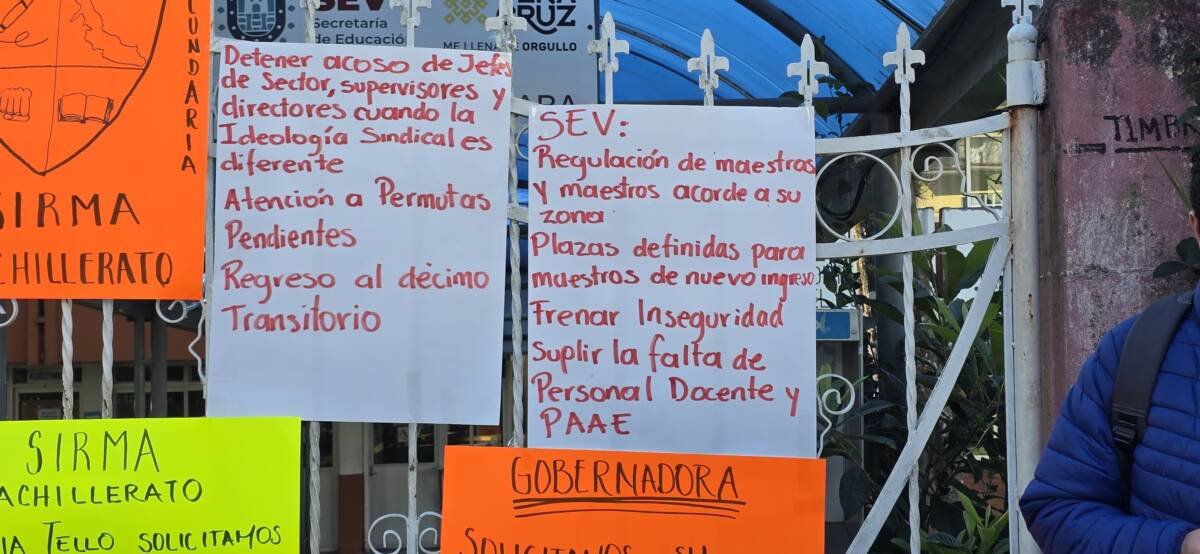 CUNDARIA
SIRMA
CHILLERATO
SEV
Secretaría
de Educación
CRUZ
ME LLENA DE ORGULLO
Detener acoso de Jefes
de Sector, supervisores y
directores cuando la
Ideología Sindical es
diferente
Atención a Permutas
Pendientes
Regreso al décimo
Transitorio
SEV:
Regulación de maestras
y maestros acorde a su
zona
Plazas definidas para
maestros de nuevo ingreso
Frenar Inseguridad
Suplir la falta de
Personal Docente y
PAAE
TIMBR
SIRMA
ACHILLERATO
IA TELLO SOLICITAMOS
GOBERNADORA
SOLICITAMOS SU